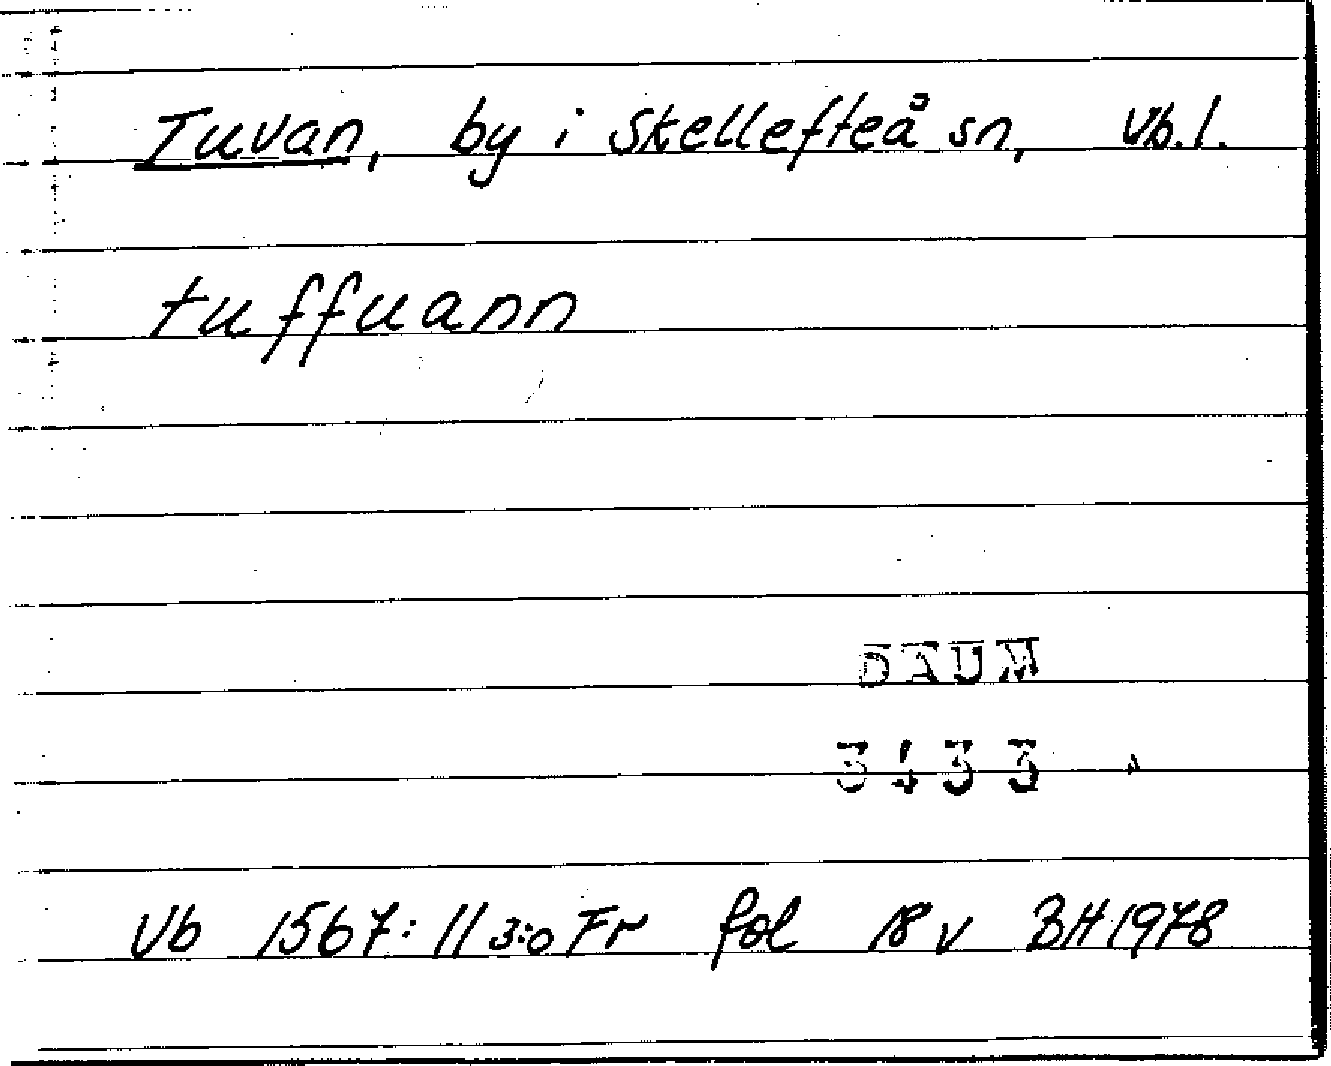 Tuvan, by i Skellefteå sn, Vb.l.
tuffuann
DAUM
3433
Vb 1567:11 3:o Fr fol 18 v BH 1978